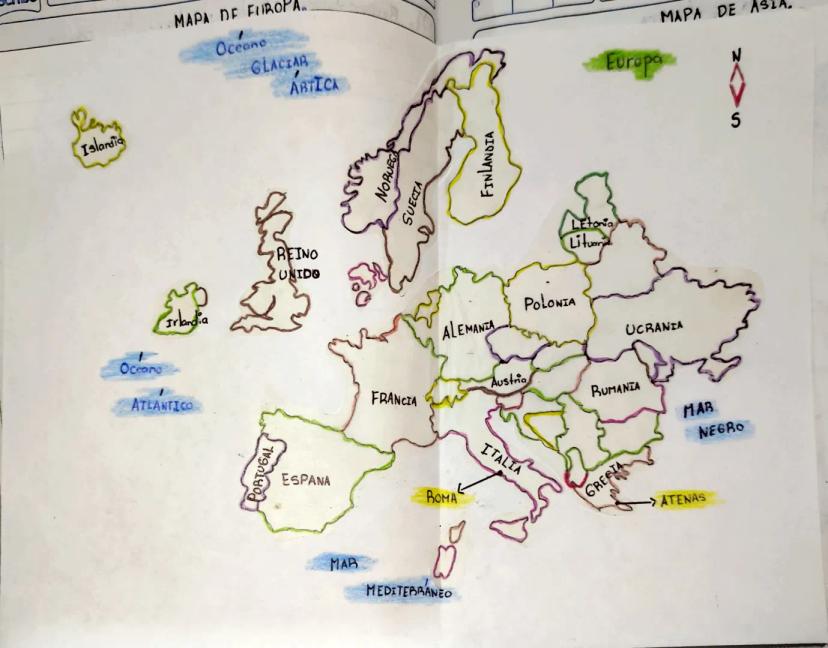 MAPA DE EUROPA.
MAPA DE ASIA.
Océano
GLACIAR
ÁRTICA
Europa
N
S
Islandia
NORUEGA
SUECIA
FINLANDIA
LEtonia
Lituani
REINO
UNIDO
Irlandia
ALEMANIA
POLONIA
UCRANIA
Océano
ATLÁNTICO
FRANCIA
Austria
RUMANIA
MAR
NEGRO
PORTUGAL
ESPANA
ITALIA
GRECIA
ROMA
ATENAS
MAR
MEDITERRÁNEO